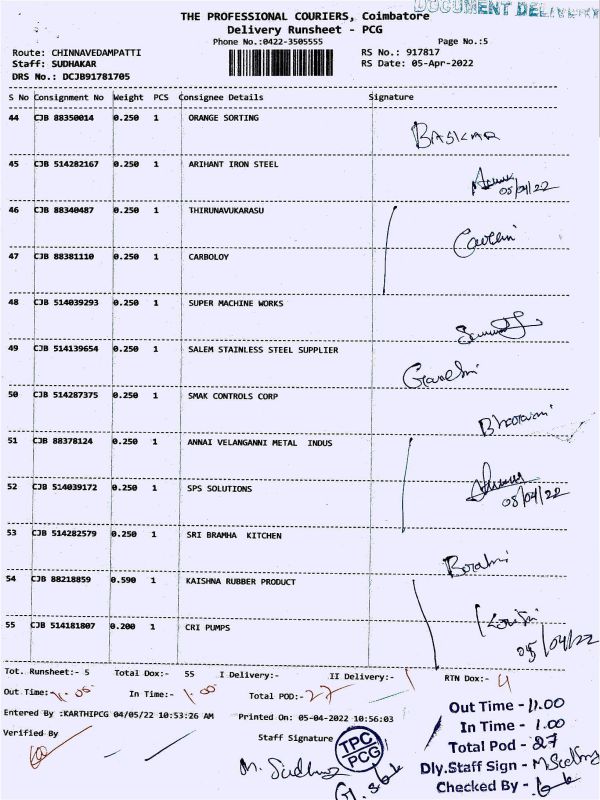 DOCUMENT DELIVERY
THE PROFESSIONAL COURIERS, Coimbatore
Delivery Runsheet - PCG
Phone No.:0422-3505555 Page No.:5
Route: CHINNAVEDAMPATTI RS No.: 917817
Staff: SUDHAKAR RS Date: 05-Apr-2022
DRS No.: DCJB91781705
S No Consignment No Weight PCS Consignee Details Signature
44 CJB 88350014 0.250 1 ORANGE SORTING BASKAR
45 CJB 514282167 0.250 1 ARIHANT IRON STEEL 05/04/22
46 CJB 88340487 0.250 1 THIRUNAVUKARASU
47 CJB 88381110 0.250 1 CARBOLOY
48 CJB 514039293 0.250 1 SUPER MACHINE WORKS
49 CJB 514139654 0.250 1 SALEM STAINLESS STEEL SUPPLIER
50 CJB 514287375 0.250 1 SMAK CONTROLS CORP
51 CJB 88378124 0.250 1 ANNAI VELANGANNI METAL INDUS
52 CJB 514039172 0.250 1 SPS SOLUTIONS 05/04/22
53 CJB 514282579 0.250 1 SRI BRAMHA KITCHEN
54 CJB 88218859 0.590 1 KAISHNA RUBBER PRODUCT
55 CJB 514181807 0.200 1 CRI PUMPS 05/04/22
Tot. Runsheet:- 5 Total Dox:- 55 I Delivery:- II Delivery:- RTN Dox:- 4
Out Time:- In Time:- 1.00 Total POD:- 27
Entered By :KARTHIPCG 04/05/22 10:53:26 AM Printed On: 05-04-2022 10:56:03
Verified By Staff Signature
TPC
PCG
Out Time - 11.00
In Time - 1.00
Total Pod - 27
Dly.Staff Sign -
Checked By -